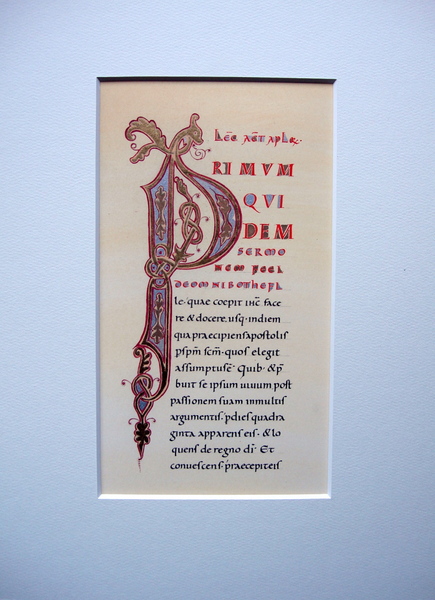 LEC̄. ACT̄. APLR.
PRIMVM
QVI
DEM
SERMO
NEM FECI
DEOMNIB OTHEFI
le. quae coepit ihc̄ face
re & docere. usq. indiem
qua praecipiens apostolis
p sp̄m sc̄m. quos elegit
assumptus ē. Quib. & p̄
buit se ipsum uiuum post
passionem suam inmultis
argumentis. p dies quadra
ginta apparens eis. & lo
quens de regno dī. Et
conuescens. praecepit eis